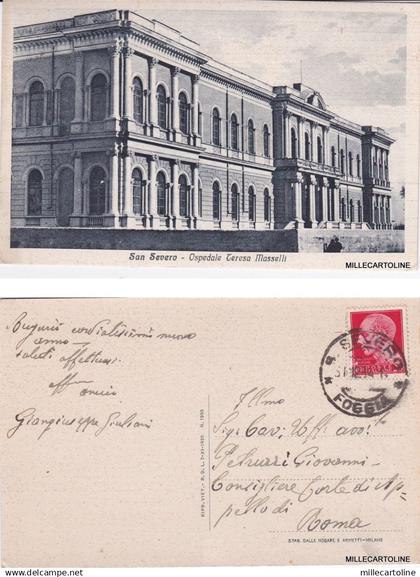 San Severo - Ospedale Teresa Masselli
MILLECARTOLINE
Auguri cordialissimi nuovo
anno
saluti affettuosi
aff.mo
amico
Giangiuseppe Giuliani
RIPR. VIET. - R. D. L. 7-XI-1925 N. 1950
S. SEVERO
FOGGIA
Illmo
Sig. Cav. Uff. avv.to
Petruzzi Giovanni -
Consigliere Corte di Ap-
pello di
Roma
STAB. DALLE NOGARE E ARMETTI - MILANO
MILLECARTOLINE
millecartoline
millecartoline